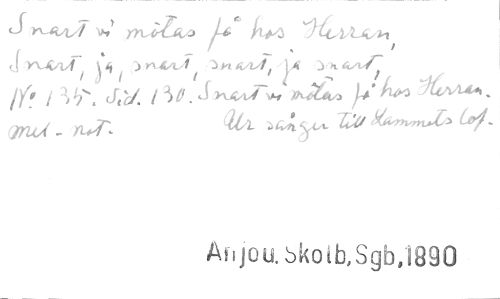 Snart vi mötas få hos Herran,
Snart, ja, snart, snart, ja snart,
No 135. Sid. 130. Snart vi mötas få hos Herran.
mel - not. Ur sånger till Lammets lof.
Anjou. Skolb, Sgb, 1890